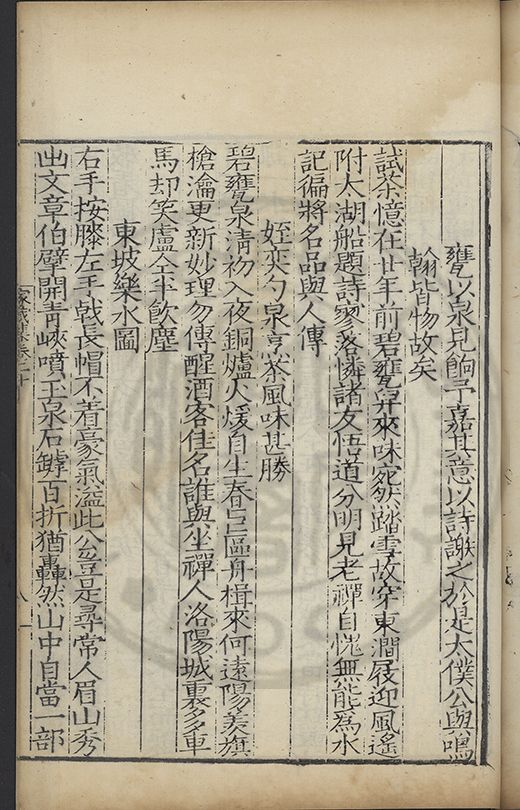 甕以泉見餉予嘉其意以詩謝之於是太僕公與鳴
翰皆物故矣
試茶憶在廿年前碧甕舁來味宛然踏雪故穿東澗屐迎風遙
附太湖船題詩寥落憐諸友悟道分明見老禪自愧無能為水
記徧將名品與人傳
姪奕勺泉烹茶風味甚勝
碧甕泉清初入夜銅爐火煖自生春巨區舟楫來何遠陽羡旗
槍瀹更新妙理勿傳醒酒客佳名誰與坐禪人洛陽城裏多車
馬却笑盧仝半飲塵
東坡樂水圖
右手按膝左手戟長帽不着豪氣溢此公豈是尋常人眉山秀
出文章伯擘開青峽噴玉泉石罅百折猶轟然山中自當一部